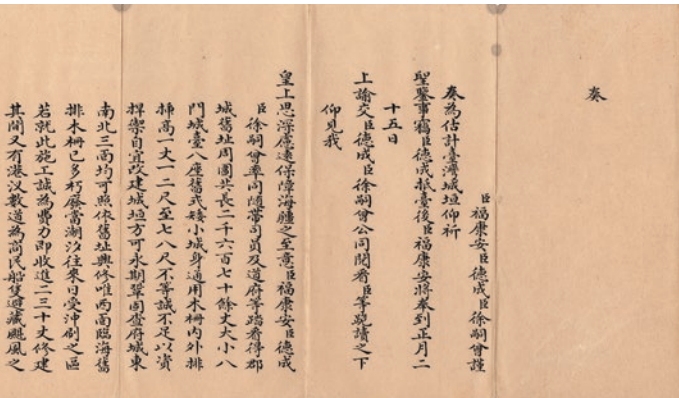 奏
臣福康安臣德成臣徐嗣曾謹
奏為估計臺灣城垣仰祈
聖鑒事竊臣德成抵臺後臣福康安將奉到正月二
十五日
上諭交臣德成臣徐嗣曾公同閱看臣等跪讀之下
仰見我
皇上思深慮遠保障海疆之至意臣福康安臣德成
臣徐嗣曾率同隨帶司員及道府等踏看得郡
城舊址周圍共長二千六百七十餘丈大小八
門城臺八座舊式矮小城身通用木柵內外排
插高一丈一二尺至七八尺不等誠不足以資
捍禦自宜改建城垣方可永期鞏固查府城東
南北三面均可照依舊址興修唯西面臨海舊
排木柵已多朽廢當潮汐往來日受沖刷之區
若就此施工誠為費力即收進二三十丈修建
其間又有港汊數道為商民船隻避藏颶風之